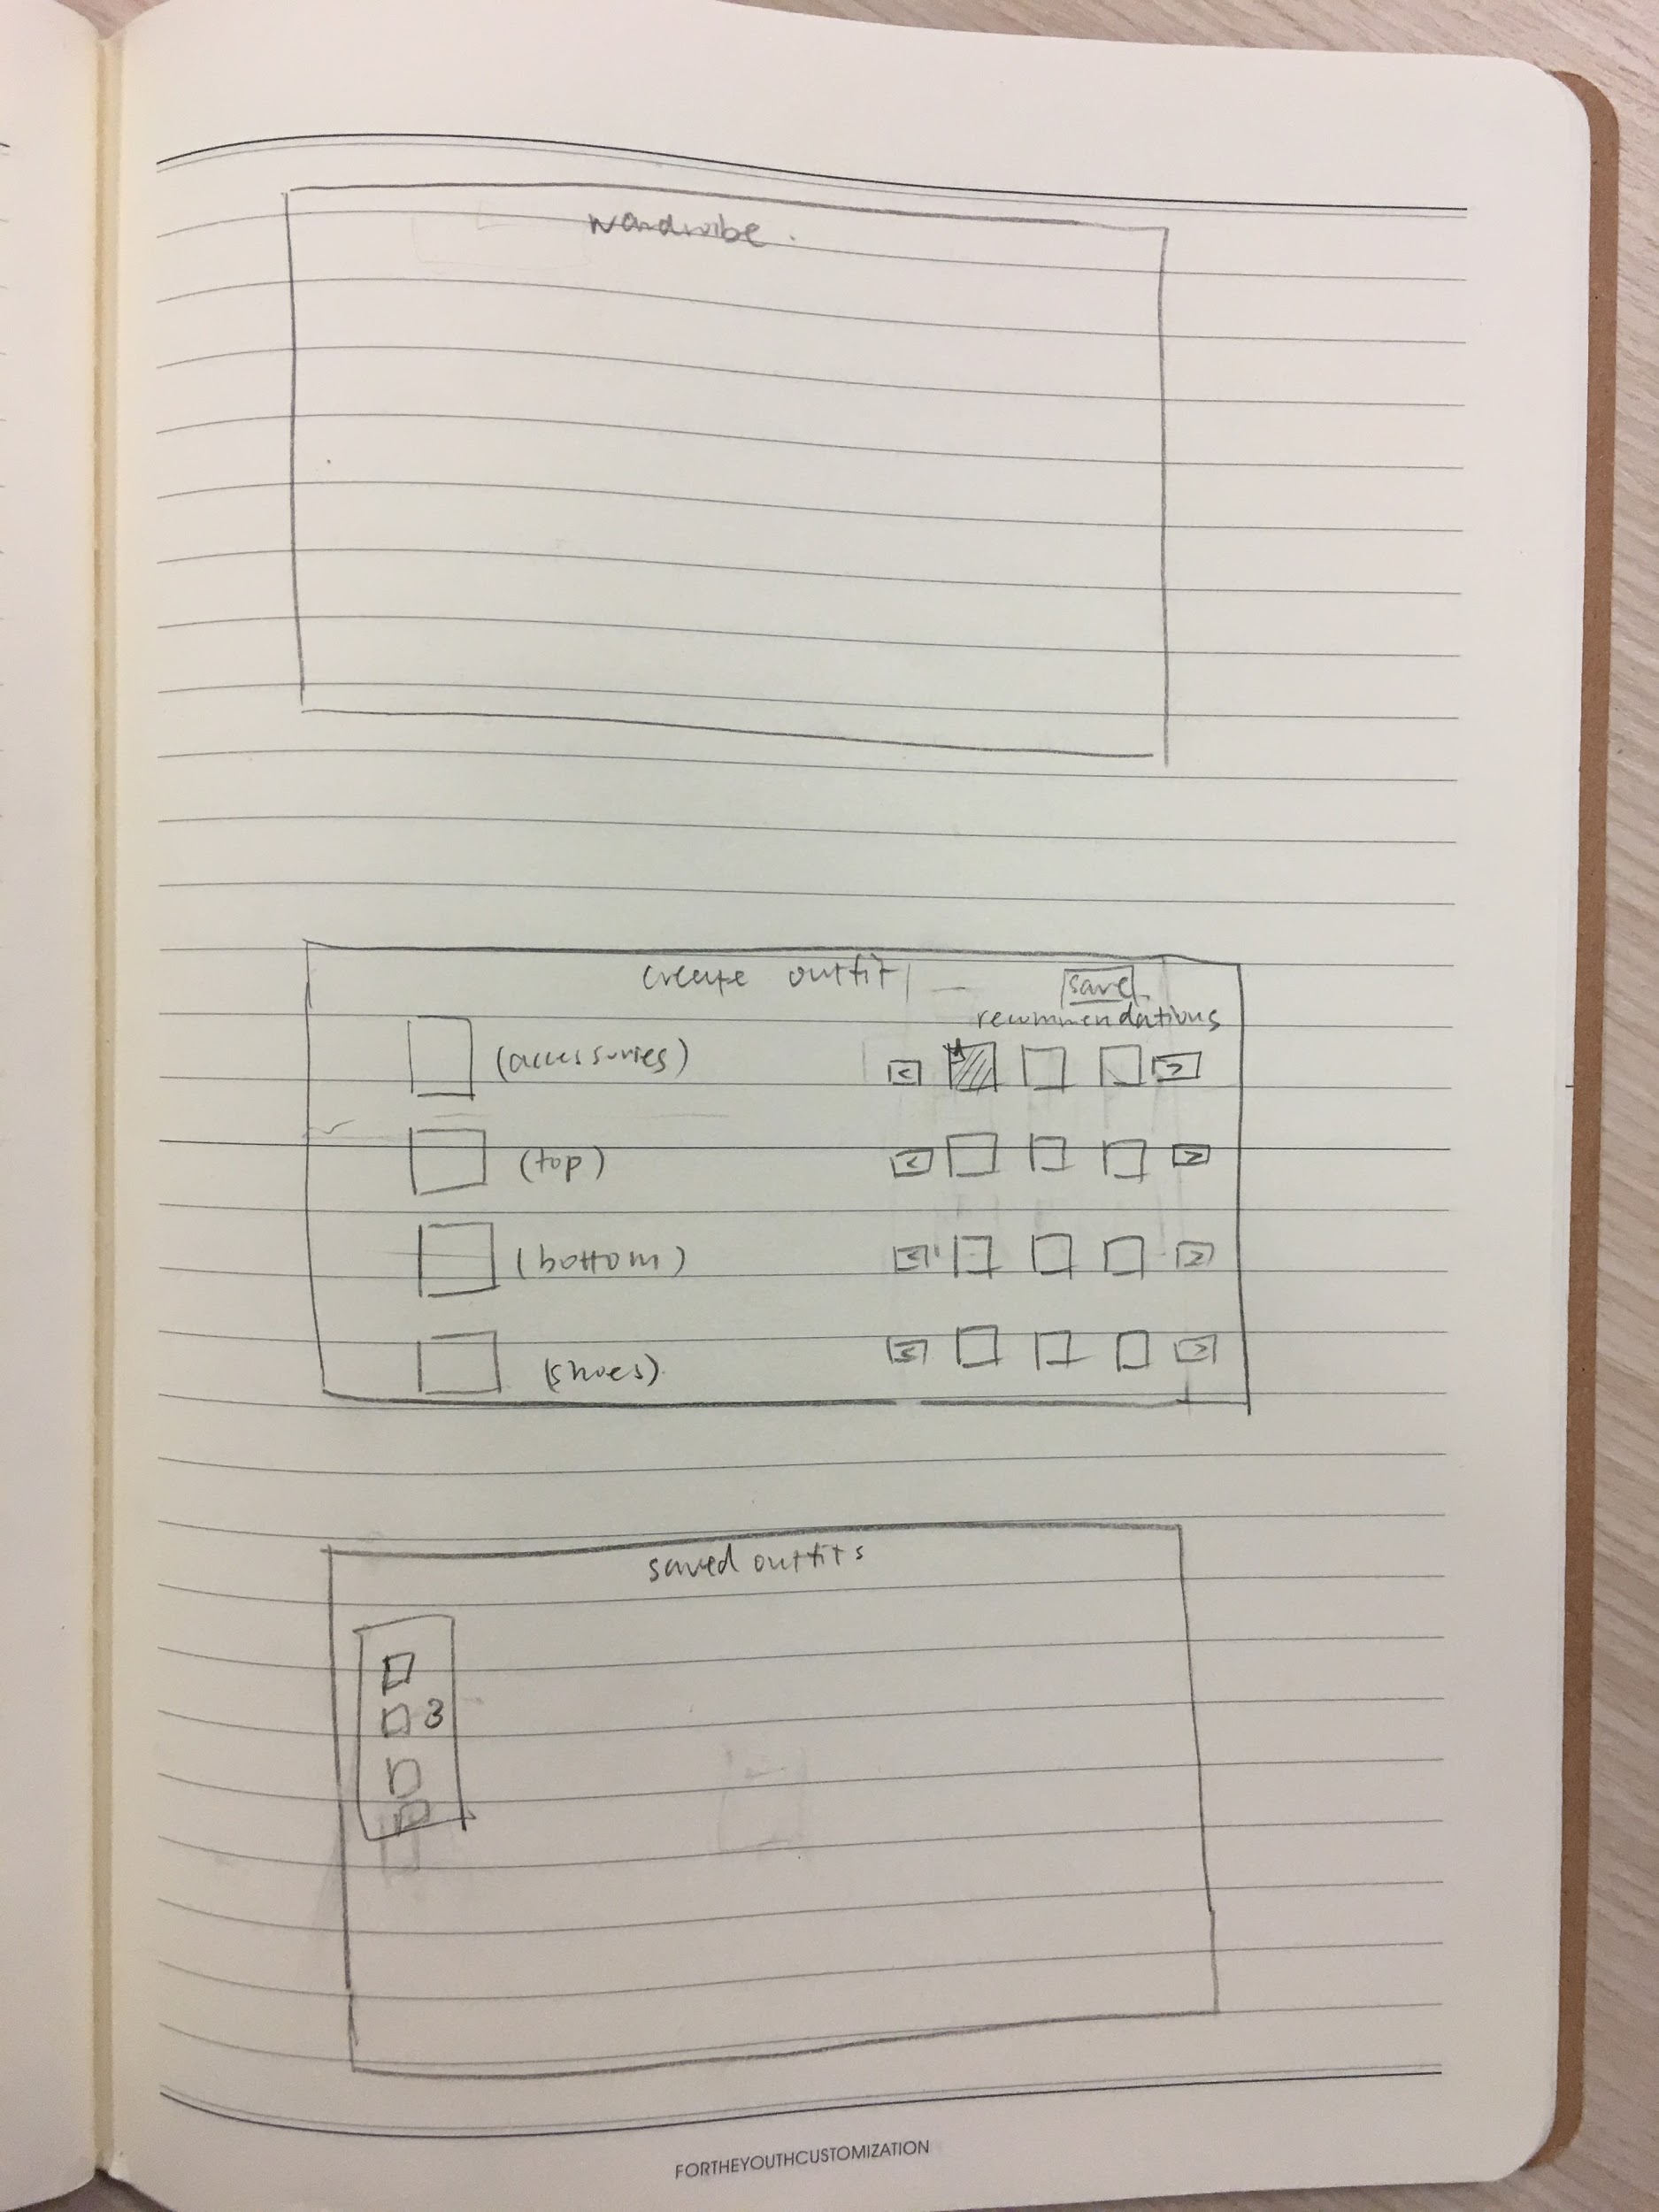 wardrobe.
create outfit
save
recommendations
(accessories)
<
>
(top)
<
>
(bottom)
<
>
(shoes)
<
>
saved outfits
3
FORTHEYOUTHCUSTOMIZATION